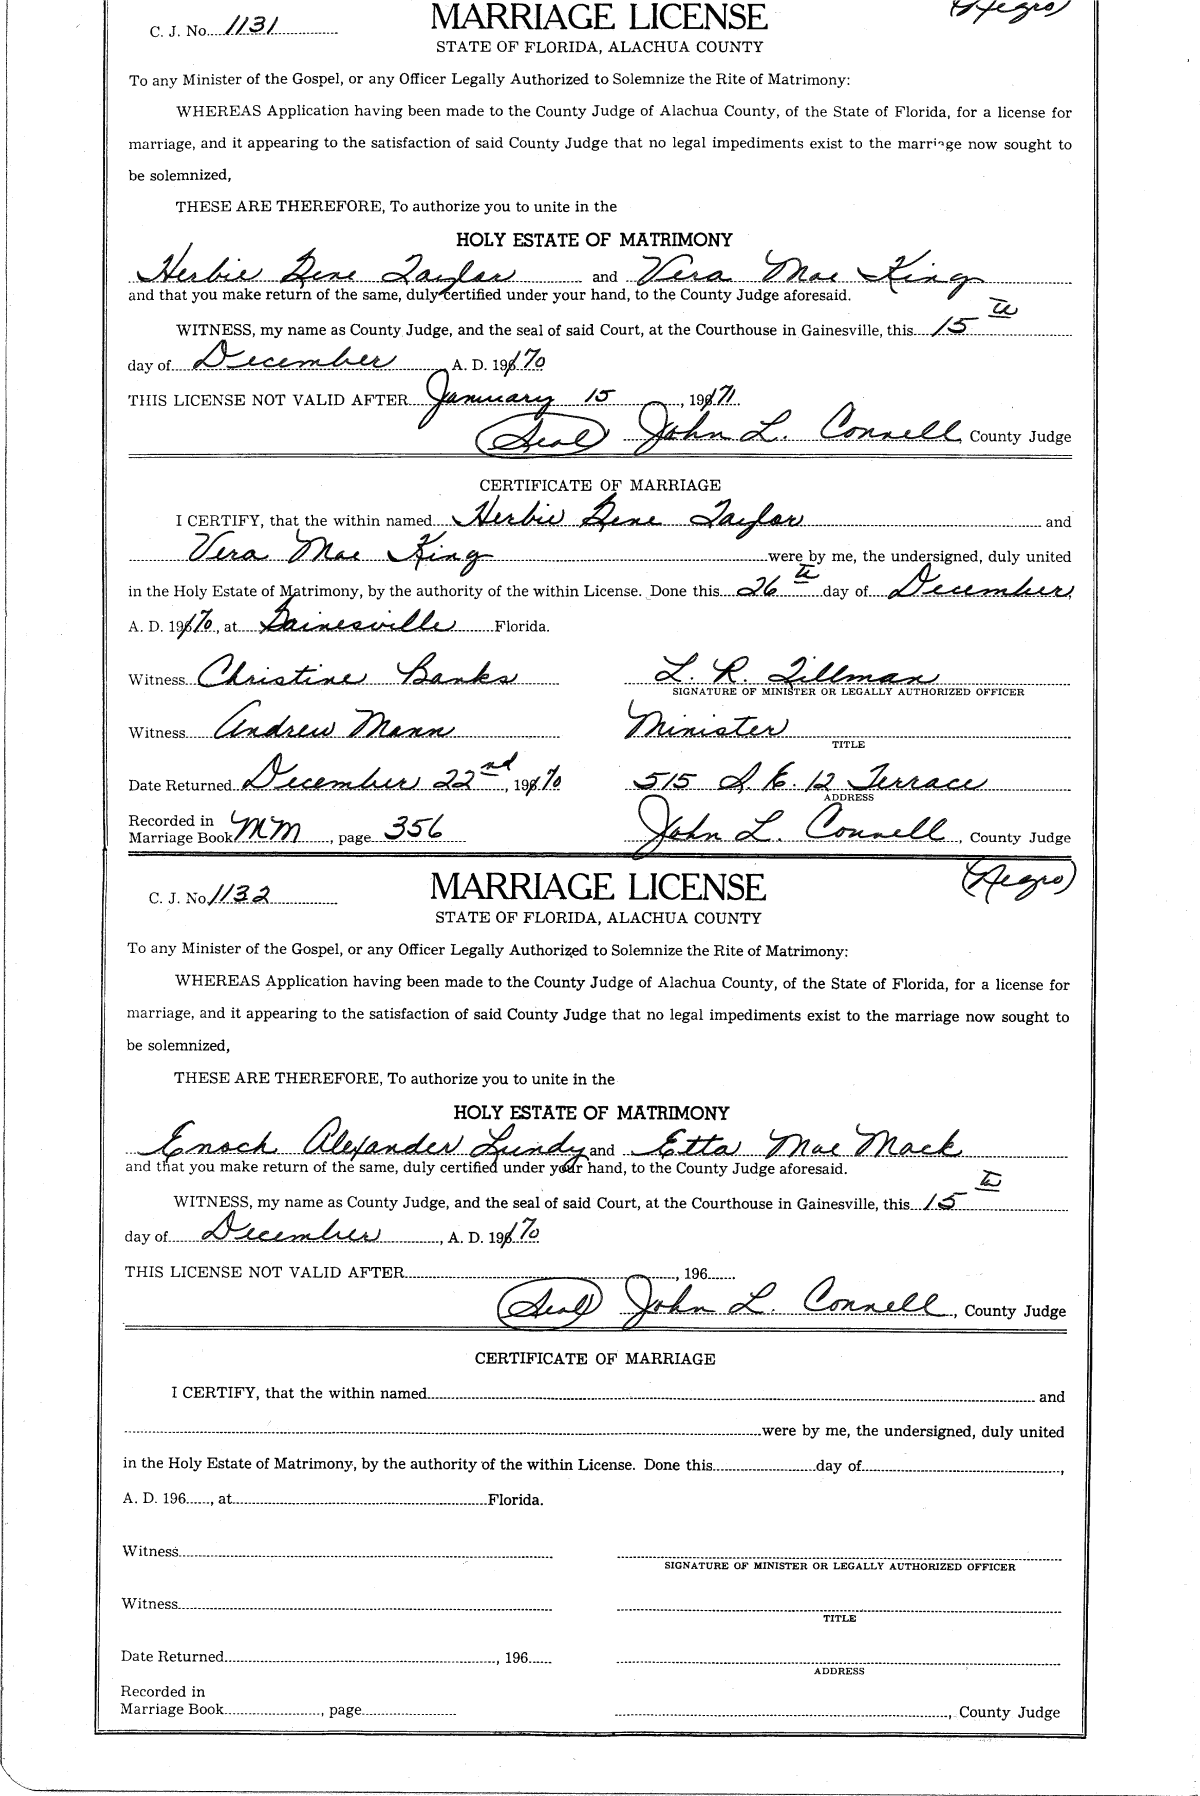 C. J. No. 1131 MARRIAGE LICENSE (Negro)
STATE OF FLORIDA, ALACHUA COUNTY
To any Minister of the Gospel, or any Officer Legally Authorized to Solemnize the Rite of Matrimony:
WHEREAS Application having been made to the County Judge of Alachua County, of the State of Florida, for a license for
marriage, and it appearing to the satisfaction of said County Judge that no legal impediments exist to the marriage now sought to
be solemnized,
THESE ARE THEREFORE, To authorize you to unite in the
HOLY ESTATE OF MATRIMONY
Herbie Gene Taylor and Vera Mae King
and that you make return of the same, duly certified under your hand, to the County Judge aforesaid.
WITNESS, my name as County Judge, and the seal of said Court, at the Courthouse in Gainesville, this 15th
day of December A. D. 1970
THIS LICENSE NOT VALID AFTER January 15, 1971
(Seal) John L. Connell, County Judge
CERTIFICATE OF MARRIAGE
I CERTIFY, that the within named Herbie Gene Taylor and
Vera Mae King were by me, the undersigned, duly united
in the Holy Estate of Matrimony, by the authority of the within License. Done this 26th day of December,
A. D. 1970, at Gainesville Florida.
Witness Christine Banks L. R. Tillman
SIGNATURE OF MINISTER OR LEGALLY AUTHORIZED OFFICER
Witness Andrew Mann Minister
TITLE
Date Returned December 22nd, 1970 515 S. E. 12 Terrace
ADDRESS
Recorded in
Marriage Book MM, page 356 John L. Connell, County Judge
C. J. No. 1132 MARRIAGE LICENSE (Negro)
STATE OF FLORIDA, ALACHUA COUNTY
To any Minister of the Gospel, or any Officer Legally Authorized to Solemnize the Rite of Matrimony:
WHEREAS Application having been made to the County Judge of Alachua County, of the State of Florida, for a license for
marriage, and it appearing to the satisfaction of said County Judge that no legal impediments exist to the marriage now sought to
be solemnized,
THESE ARE THEREFORE, To authorize you to unite in the
HOLY ESTATE OF MATRIMONY
Enoch Alexander Lundy and Etta Mae Mack
and that you make return of the same, duly certified under your hand, to the County Judge aforesaid.
WITNESS, my name as County Judge, and the seal of said Court, at the Courthouse in Gainesville, this 15th
day of December, A. D. 1970
THIS LICENSE NOT VALID AFTER, 196
(Seal) John L. Connell, County Judge
CERTIFICATE OF MARRIAGE
I CERTIFY, that the within named and
were by me, the undersigned, duly united
in the Holy Estate of Matrimony, by the authority of the within License. Done this day of,
A. D. 196, at Florida.
Witness
SIGNATURE OF MINISTER OR LEGALLY AUTHORIZED OFFICER
Witness
TITLE
Date Returned, 196
ADDRESS
Recorded in
Marriage Book, page, County Judge